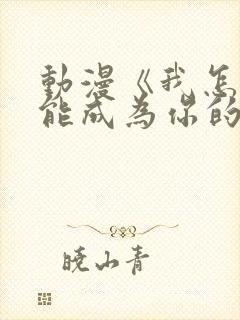 動漫《我怎
能成為你的
曉山青